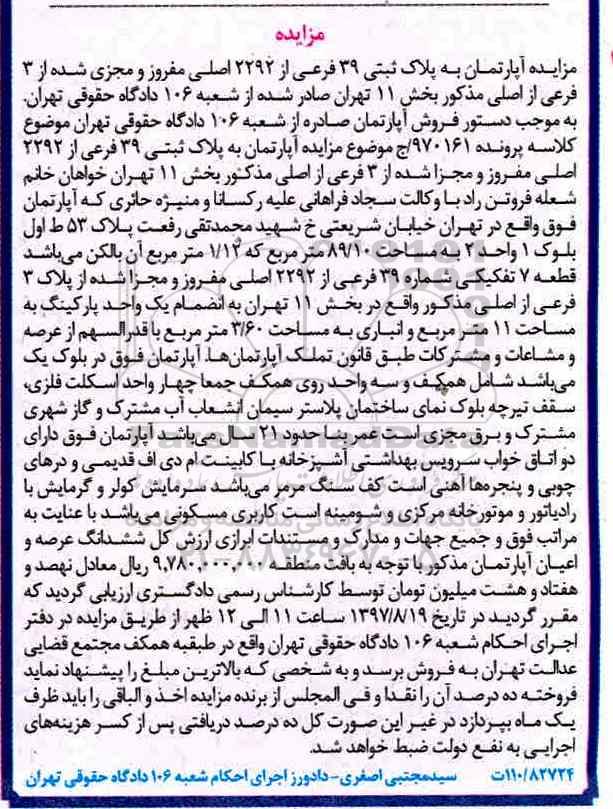 مزایده
مزایده آپارتمان به پلاک ثبتی ۳۹ فرعی از ۲۲۹۲ اصلی مفروز و مجزی شده از ۳
فرعی از اصلی مذکور بخش ۱۱ تهران صادر شده از شعبه ۱۰۶ دادگاه حقوقی تهران.
به موجب دستور فروش آپارتمان صادره از شعبه ۱۰۶ دادگاه حقوقی تهران موضوع
کلاسه پرونده ۹۷۰۱۶۱/ج موضوع مزایده آپارتمان به پلاک ثبتی ۳۹ فرعی از ۲۲۹۲
اصلی مفروز و مجزا شده از ۳ فرعی از اصلی مذکور بخش ۱۱ تهران خواهان خانم
شعله فروتن راد با وکالت سجاد فراهانی علیه رکسانا و منیژه حائری که آپارتمان
فوق واقع در تهران خیابان شریعتی خ شهید محمدتقی رفعت پلاک ۵۳ ط اول
بلوک ۱ واحد ۲ به مساحت ۸۹/۱۰ متر مربع که ۱/۱۲ متر مربع آن بالکن می‌باشد
قطعه ۷ تفکیکی شماره ۳۹ فرعی از ۲۲۹۲ اصلی مفروز و مجزا شده از پلاک ۳
فرعی از اصلی مذکور واقع در بخش ۱۱ تهران به انضمام یک واحد پارکینگ به
مساحت ۱۱ متر مربع و انباری به مساحت ۳/۶۰ متر مربع با قدرالسهم از عرصه
و مشاعات و مشترکات طبق قانون تملک آپارتمان‌ها. آپارتمان فوق در بلوک یک
می‌باشد شامل همکف و سه واحد روی همکف جمعا چهار واحد اسکلت فلزی،
سقف تیرچه بلوک نمای ساختمان پلاستر سیمان انشعاب آب مشترک و گاز شهری
مشترک و برق مجزی است عمر بنا حدود ۲۱ سال می‌باشد آپارتمان فوق دارای
دو اتاق خواب سرویس بهداشتی آشپزخانه با کابینت ام دی اف قدیمی و درهای
چوبی و پنجرها آهنی است کف سنگ مرمر می‌باشد سرمایش کولر و گرمایش با
رادیاتور و موتورخانه مرکزی و شومینه است کاربری مسکونی می‌باشد با عنایت به
مراتب فوق و جمیع جهات و مدارک و مستندات ابرازی ارزش کل ششدانگ عرصه و
اعیان آپارتمان مذکور با توجه به بافت منطقه ۹,۷۸۰,۰۰۰,۰۰۰ ریال معادل نهصد و
هفتاد و هشت میلیون تومان توسط کارشناس رسمی دادگستری ارزیابی گردید که
مقرر گردید در تاریخ ۱۳۹۷/۸/۱۹ ساعت ۱۱ الی ۱۲ ظهر از طریق مزایده در دفتر
اجرای احکام شعبه ۱۰۶ دادگاه حقوقی تهران واقع در طبقبه همکف مجتمع قضایی
عدالت تهران به فروش برسد و به شخصی که بالاترین مبلغ را پیشنهاد نماید
فروخته ده درصد آن را نقدا و فی المجلس از برنده مزایده اخذ و الباقی را باید ظرف
یک ماه بپردازد در غیر این صورت کل ده درصد دریافتی پس از کسر هزینه‌های
اجرایی به نفع دولت ضبط خواهد شد.
۱۱۰/۸۲۷۲۴ت سیدمجتبی اصغری-دادورز اجرای احکام شعبه ۱۰۶ دادگاه حقوقی تهران